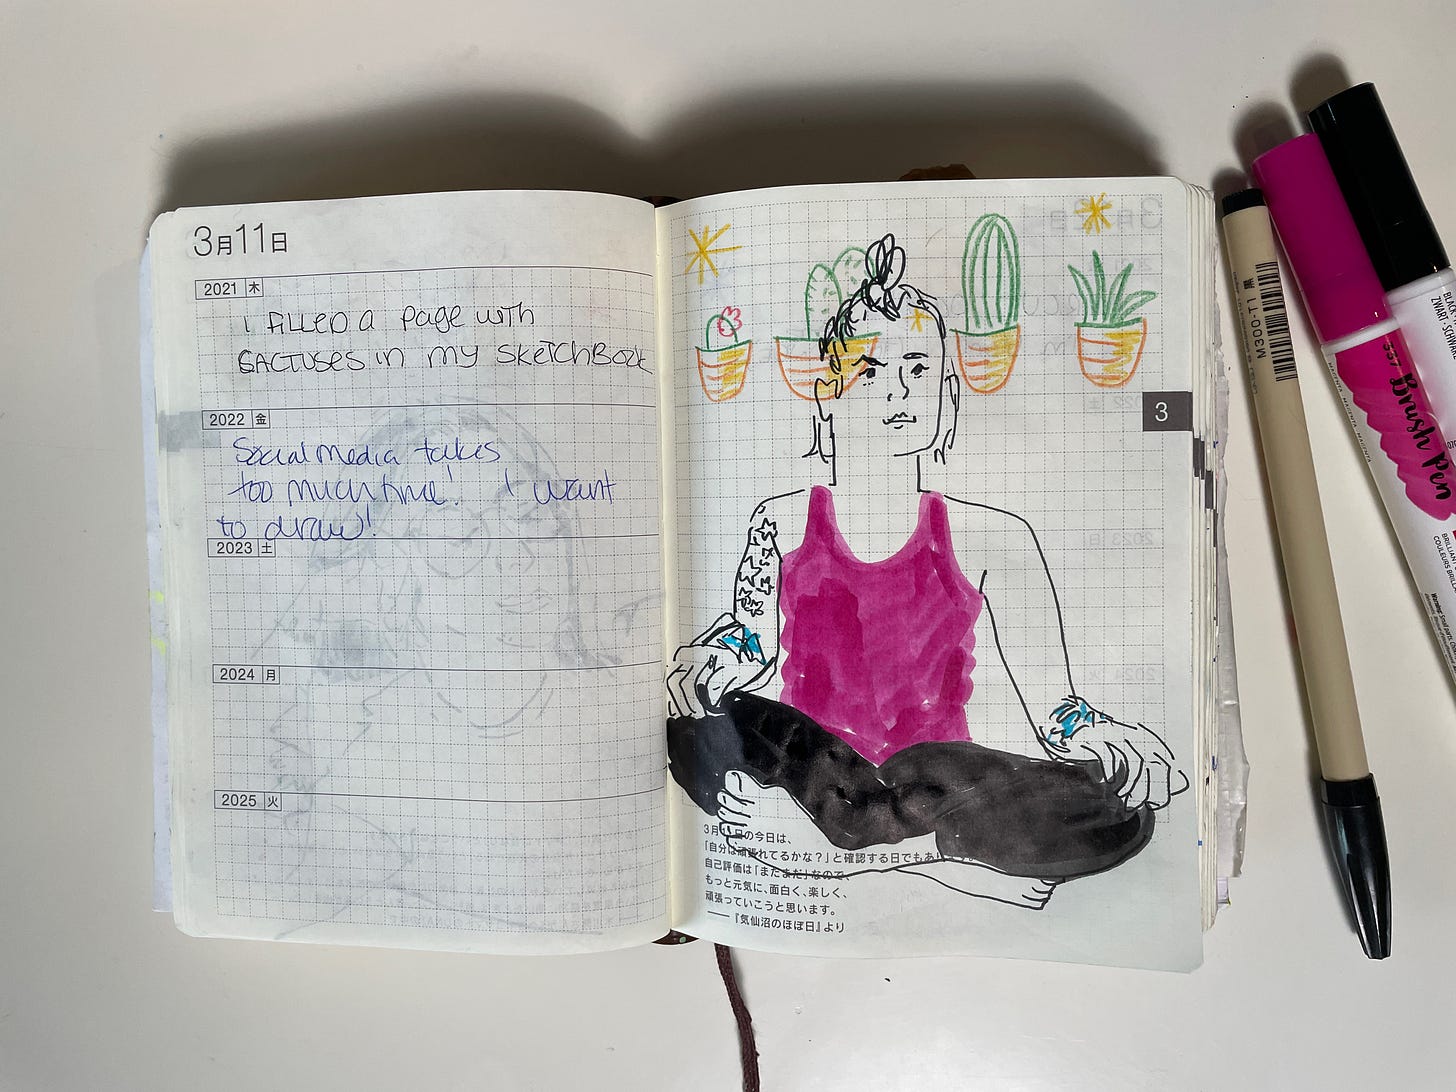 3月11日
2021 木
I FILLED a page with
CACTUSES in my SKETCHBOOK
2022 金
Social media takes
too much time! I want
to draw!
2023 土
2024 月
2025 火
3
3月11日の今日は、
「自分は頑張れてるかな?」と確認する日でもあります。
自己評価は「まだまだ」なので、
もっと元気に、面白く、楽しく、
頑張っていこうと思います。
——『気仙沼のほぼ日』より
M300-T1 黒
Brush pen
BLACK
ZWART SCHWARZ